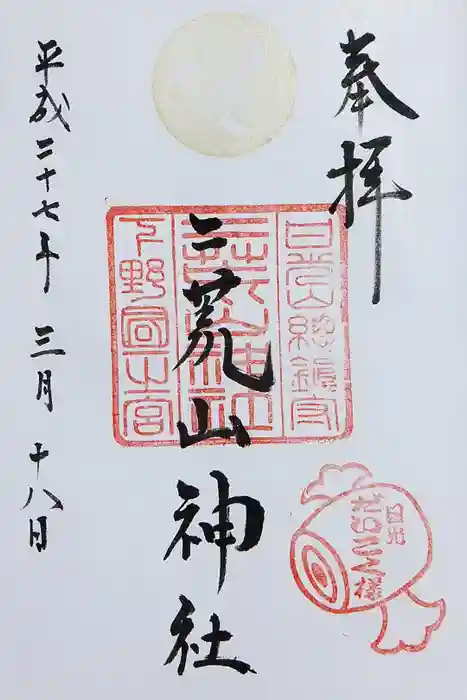 奉拝
日光山総鎮守
二荒山神社
下野國一宮
二荒山神社
日光
だいこく様
平成二十七年三月十八日